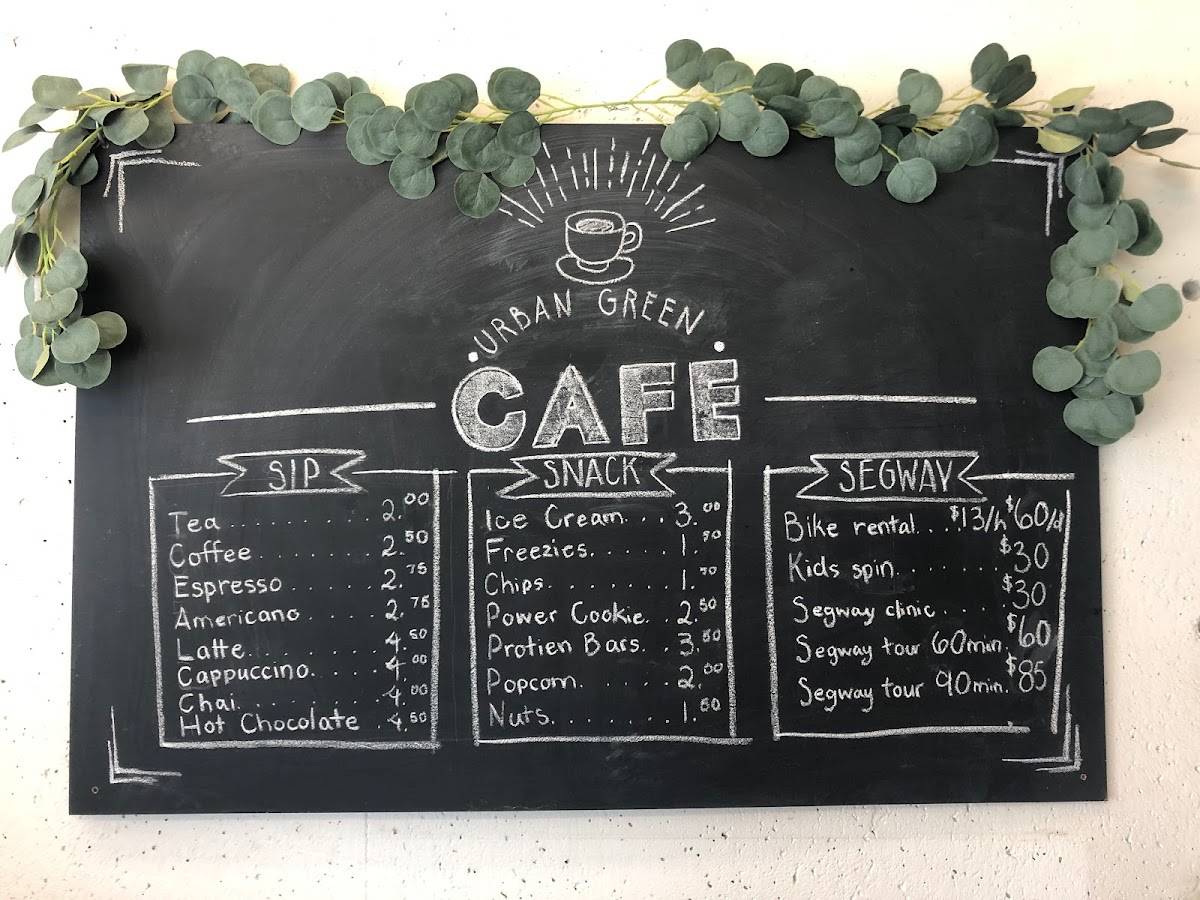 URBAN GREEN
CAFE
SIP
Tea.......... 2.00
Coffee........ 2.50
Espresso...... 2.75
Americano..... 2.75
Latte......... 4.50
Cappuccino.... 4.00
Chai.......... 4.00
Hot Chocolate . 4.50
SNACK
Ice Cream... 3.00
Freezies..... 1.50
Chips........ 1.50
Power Cookie.. 2.50
Protien Bars.. 3.50
Popcorn...... 2.00
Nuts........ 1.50
SEGWAY
Bike rental... $13/h $60/d
Kids spin........ $30
Segway clinic..... $30
Segway tour 60min. $60
Segway tour 90min. $85